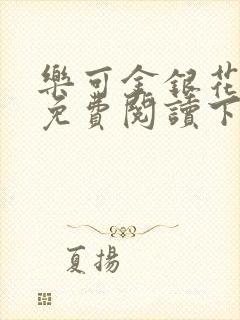 樂可金銀花
免費閱讀下
夏揚